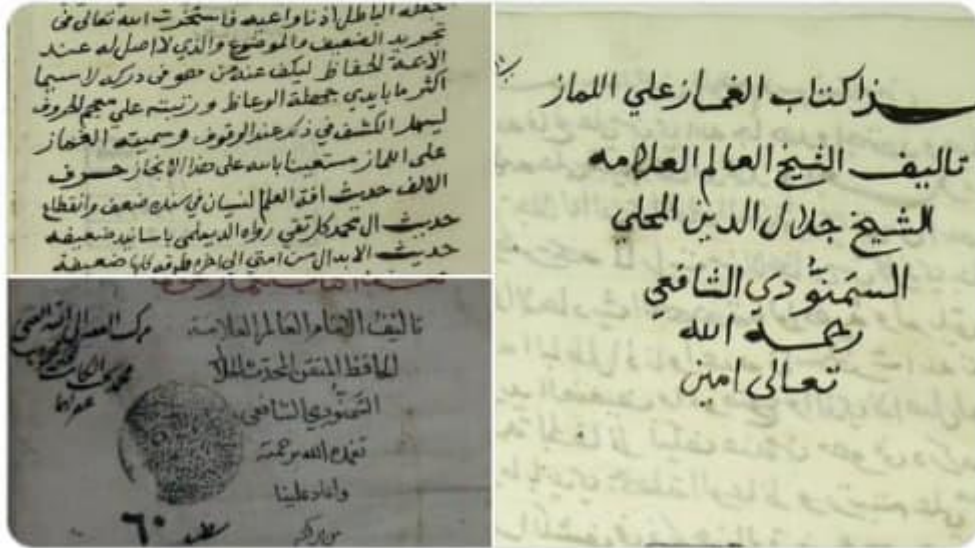 هذا كتاب الغماز علي اللماز
تاليف الشيخ العالم العلامه
الشيخ جلال الدين المحلي
السمنودي الشافعي
رحمه الله
تعالى امين
جهلة الباطل اذنا واعيه فاستخرت الله تعالى في
تجريد الضعيف والموضوع والذي لا اصل له عند
الايمة الحفاظ ليكف عنه من هو في دركه لاسيما
اكثر ما بايدي جهلة الوعاظ ورتبته على معجم الحروف
ليسهل الكشف في ذكر عند الوقوف وسميته الغماز
على اللماز مستعينا بالله على هذا الانجاز حرف
الالف حديث افة العلم النسيان في سنده ضعف وانقطاع
حديث ال محمد كل تقي رواه الديلمي باسانيد ضعيفه
حديث الابدال من امتي الى اخره طرقه كلها ضعيفة
تاليف الامام العالم العلامة
الحافظ المتقن المحدث
السمنودي الشافعي
تغمده الله برحمته
واعاد علينا
من بركته
٦٠